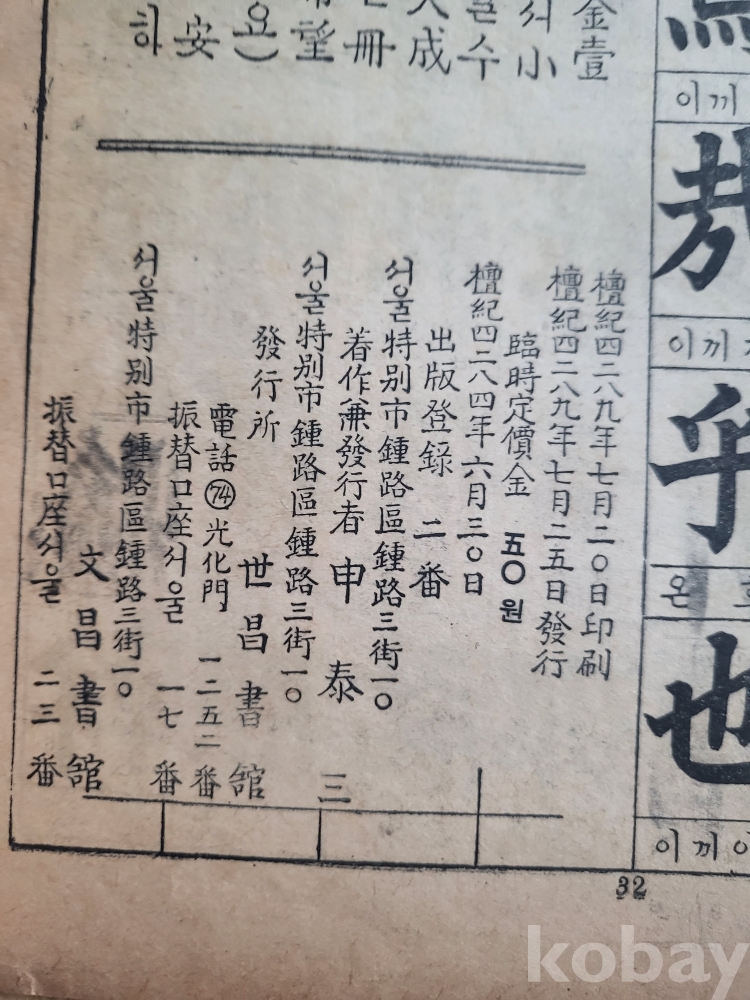 哉
이끼
乎
온
也
이끼
金壹
小
수
成
冊
望
요)
安
하
檀紀四二八九年七月二〇日印刷
檀紀四二八九年七月二五日發行
臨時定價金 五〇원
檀紀四二八四年六月三〇日
出版登錄 二番
서울特別市鍾路區鍾路三街一〇
著作兼發行者 申泰三
서울特別市鍾路區鍾路三街一〇
發行所 世昌書館
電話74光化門 一二五二番
振替口座서울 一七番
서울特別市鍾路區鍾路三街一〇
文昌書館
振替口座서울 二三番
32
kobay